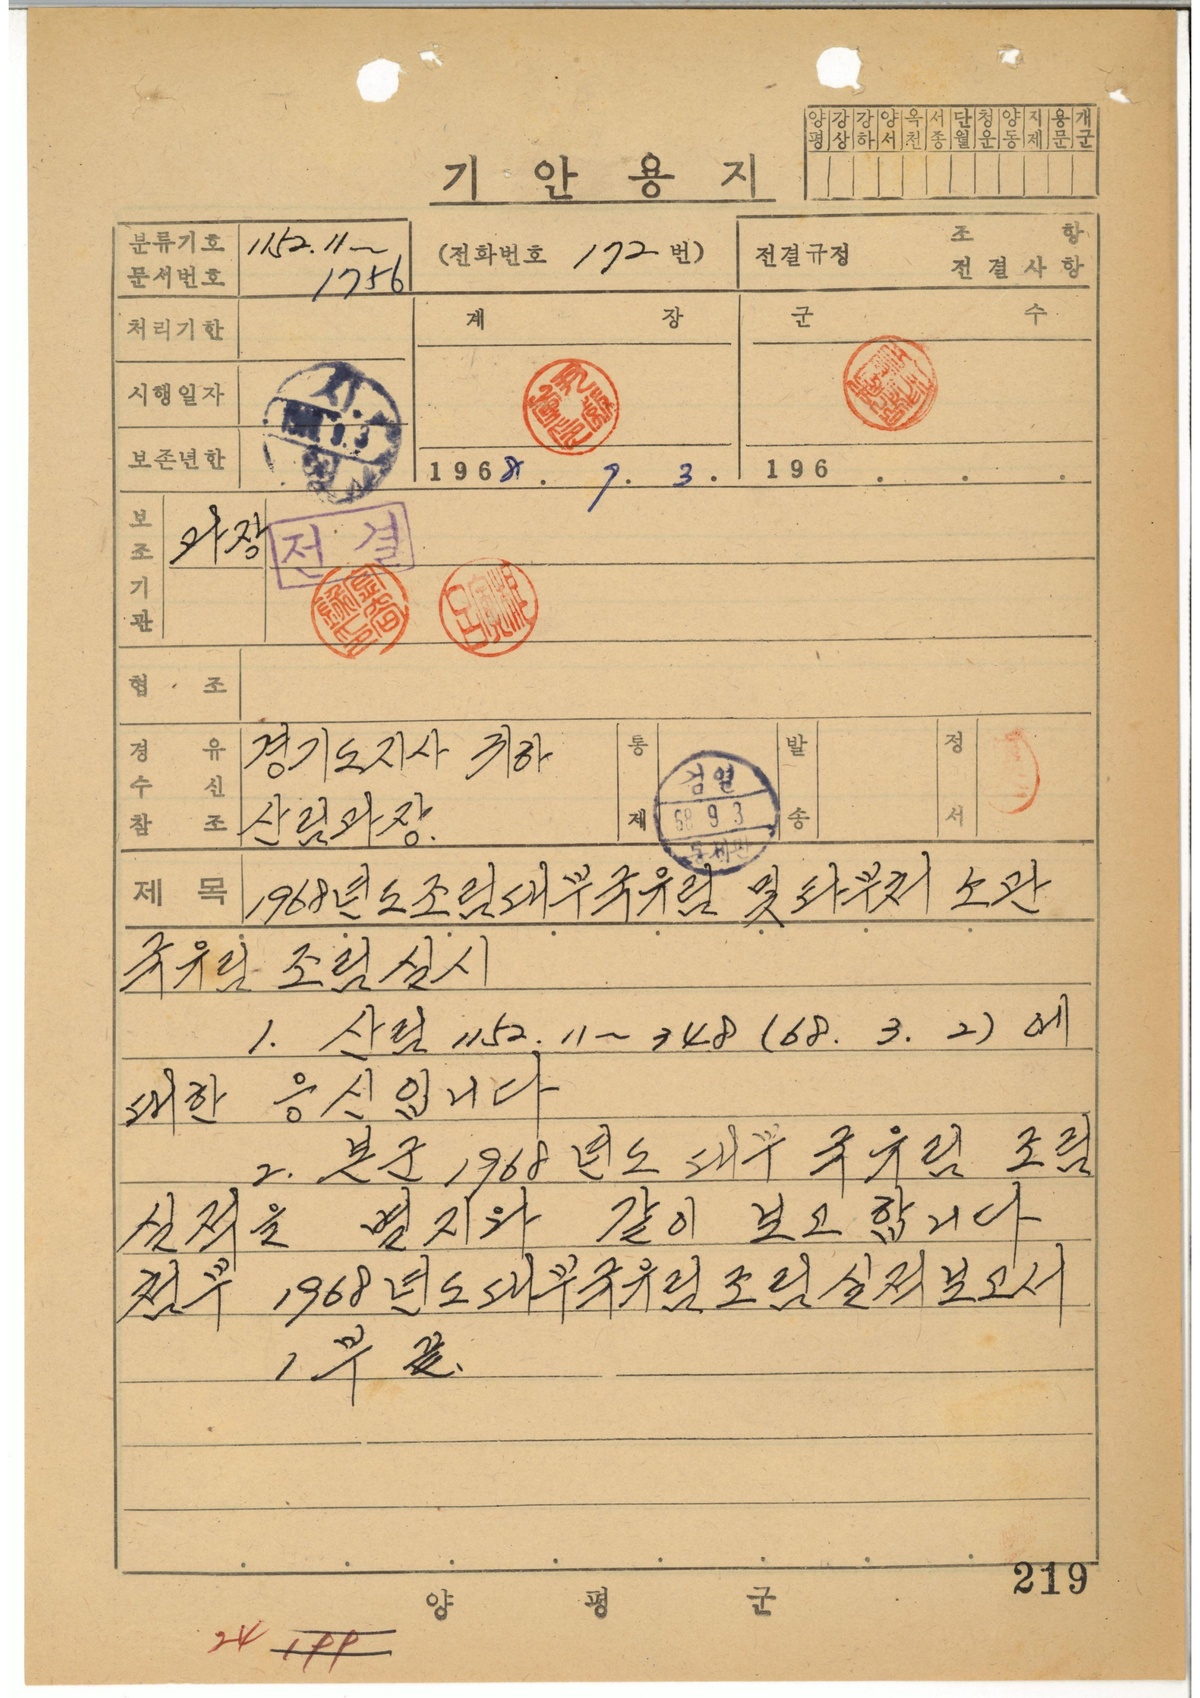 양평 강상 강하 양서 옥천 서종 단월 청운 양동 지제 용문 개군
기안용지
분류기호 문서번호 1152.11~ 1756
(전화번호 172번)
전결규정 조 항 전결사항
처리기한
계 장
군 수
시행일자
시행
9.3
보존년한
1968. 9. 3.
196 . . .
보조기관
과장
전결
협 조
경 유
수 신
참 조
경기도지사 귀하
산림과장.
통제
검열
68 9 3
발송
정서
제 목 1968년도조림대부국유림 및 타부처 소관
국유림 조림실시
1. 산림 1152.11~348 (68. 3. 2) 에
대한 응신입니다
2. 본군 1968년도 대부 국유림 조림
실적을 별지와 같이 보고합니다
첨부 1968년도대부국유림조림실적보고서
1부 끝.
219
양 평 군
24 199